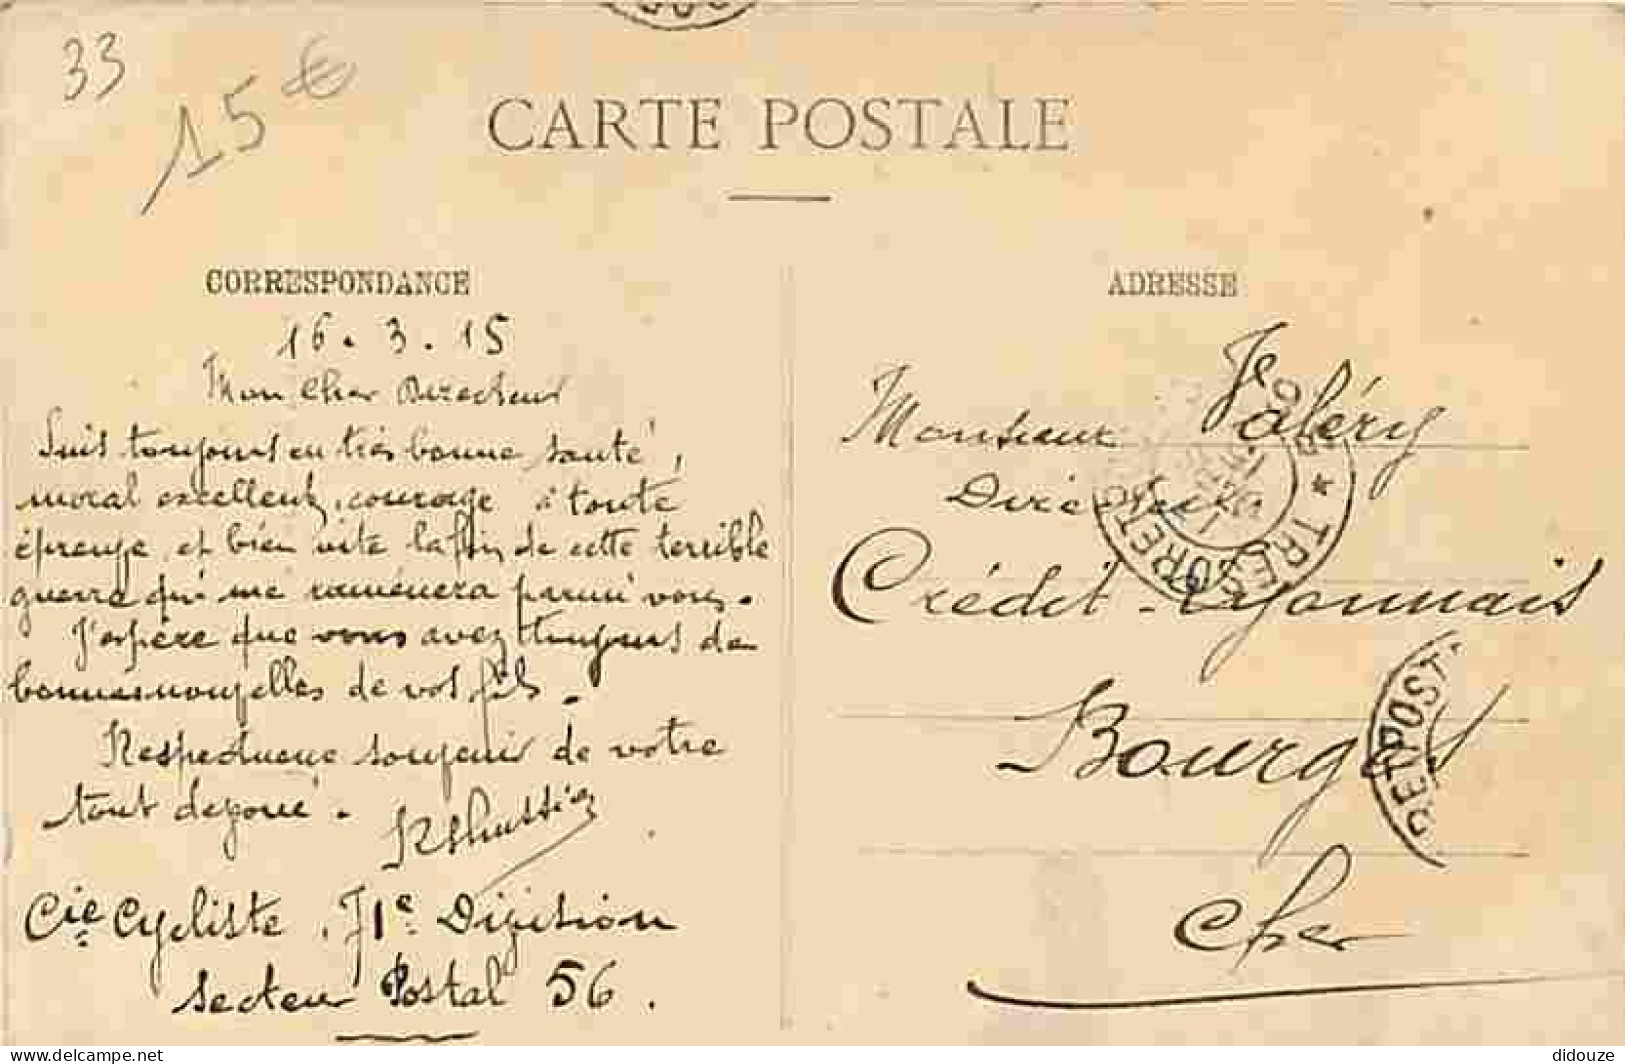 33
15 €
CARTE POSTALE
CORRESPONDANCE
16 . 3 . 15
Mon Cher Directeur
Suis toujours en très bonne santé,
moral excellent, courage à toute
épreuve, et bien vite la fin de cette terrible
guerre qui me ramènera parmi vous.
J'espère que vous avez toujours de
bonnes nouvelles de vos fils.
Respectueux souvenir de votre
tout dévoué.
Cie Cycliste. 71e Division
Secteur Postal 56.
ADRESSE
Monsieur Valéry
Directeur
Crédit-Lyonnais
Bourges
Cher
TRESOR ET
ET POST
delcampe.net
didouze